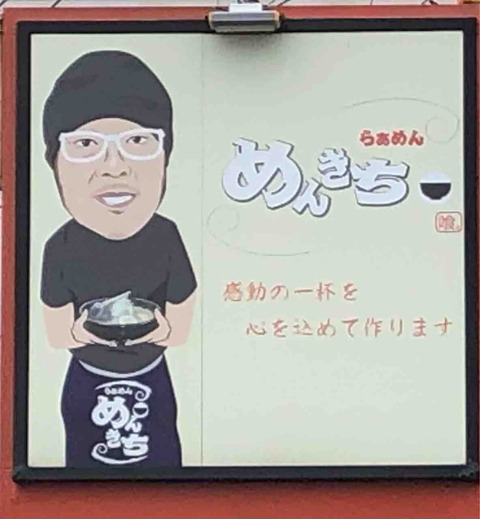 らぁめん
めんきち
喰。
感動の一杯を
心を込めて作ります
らぁめん
めんきち